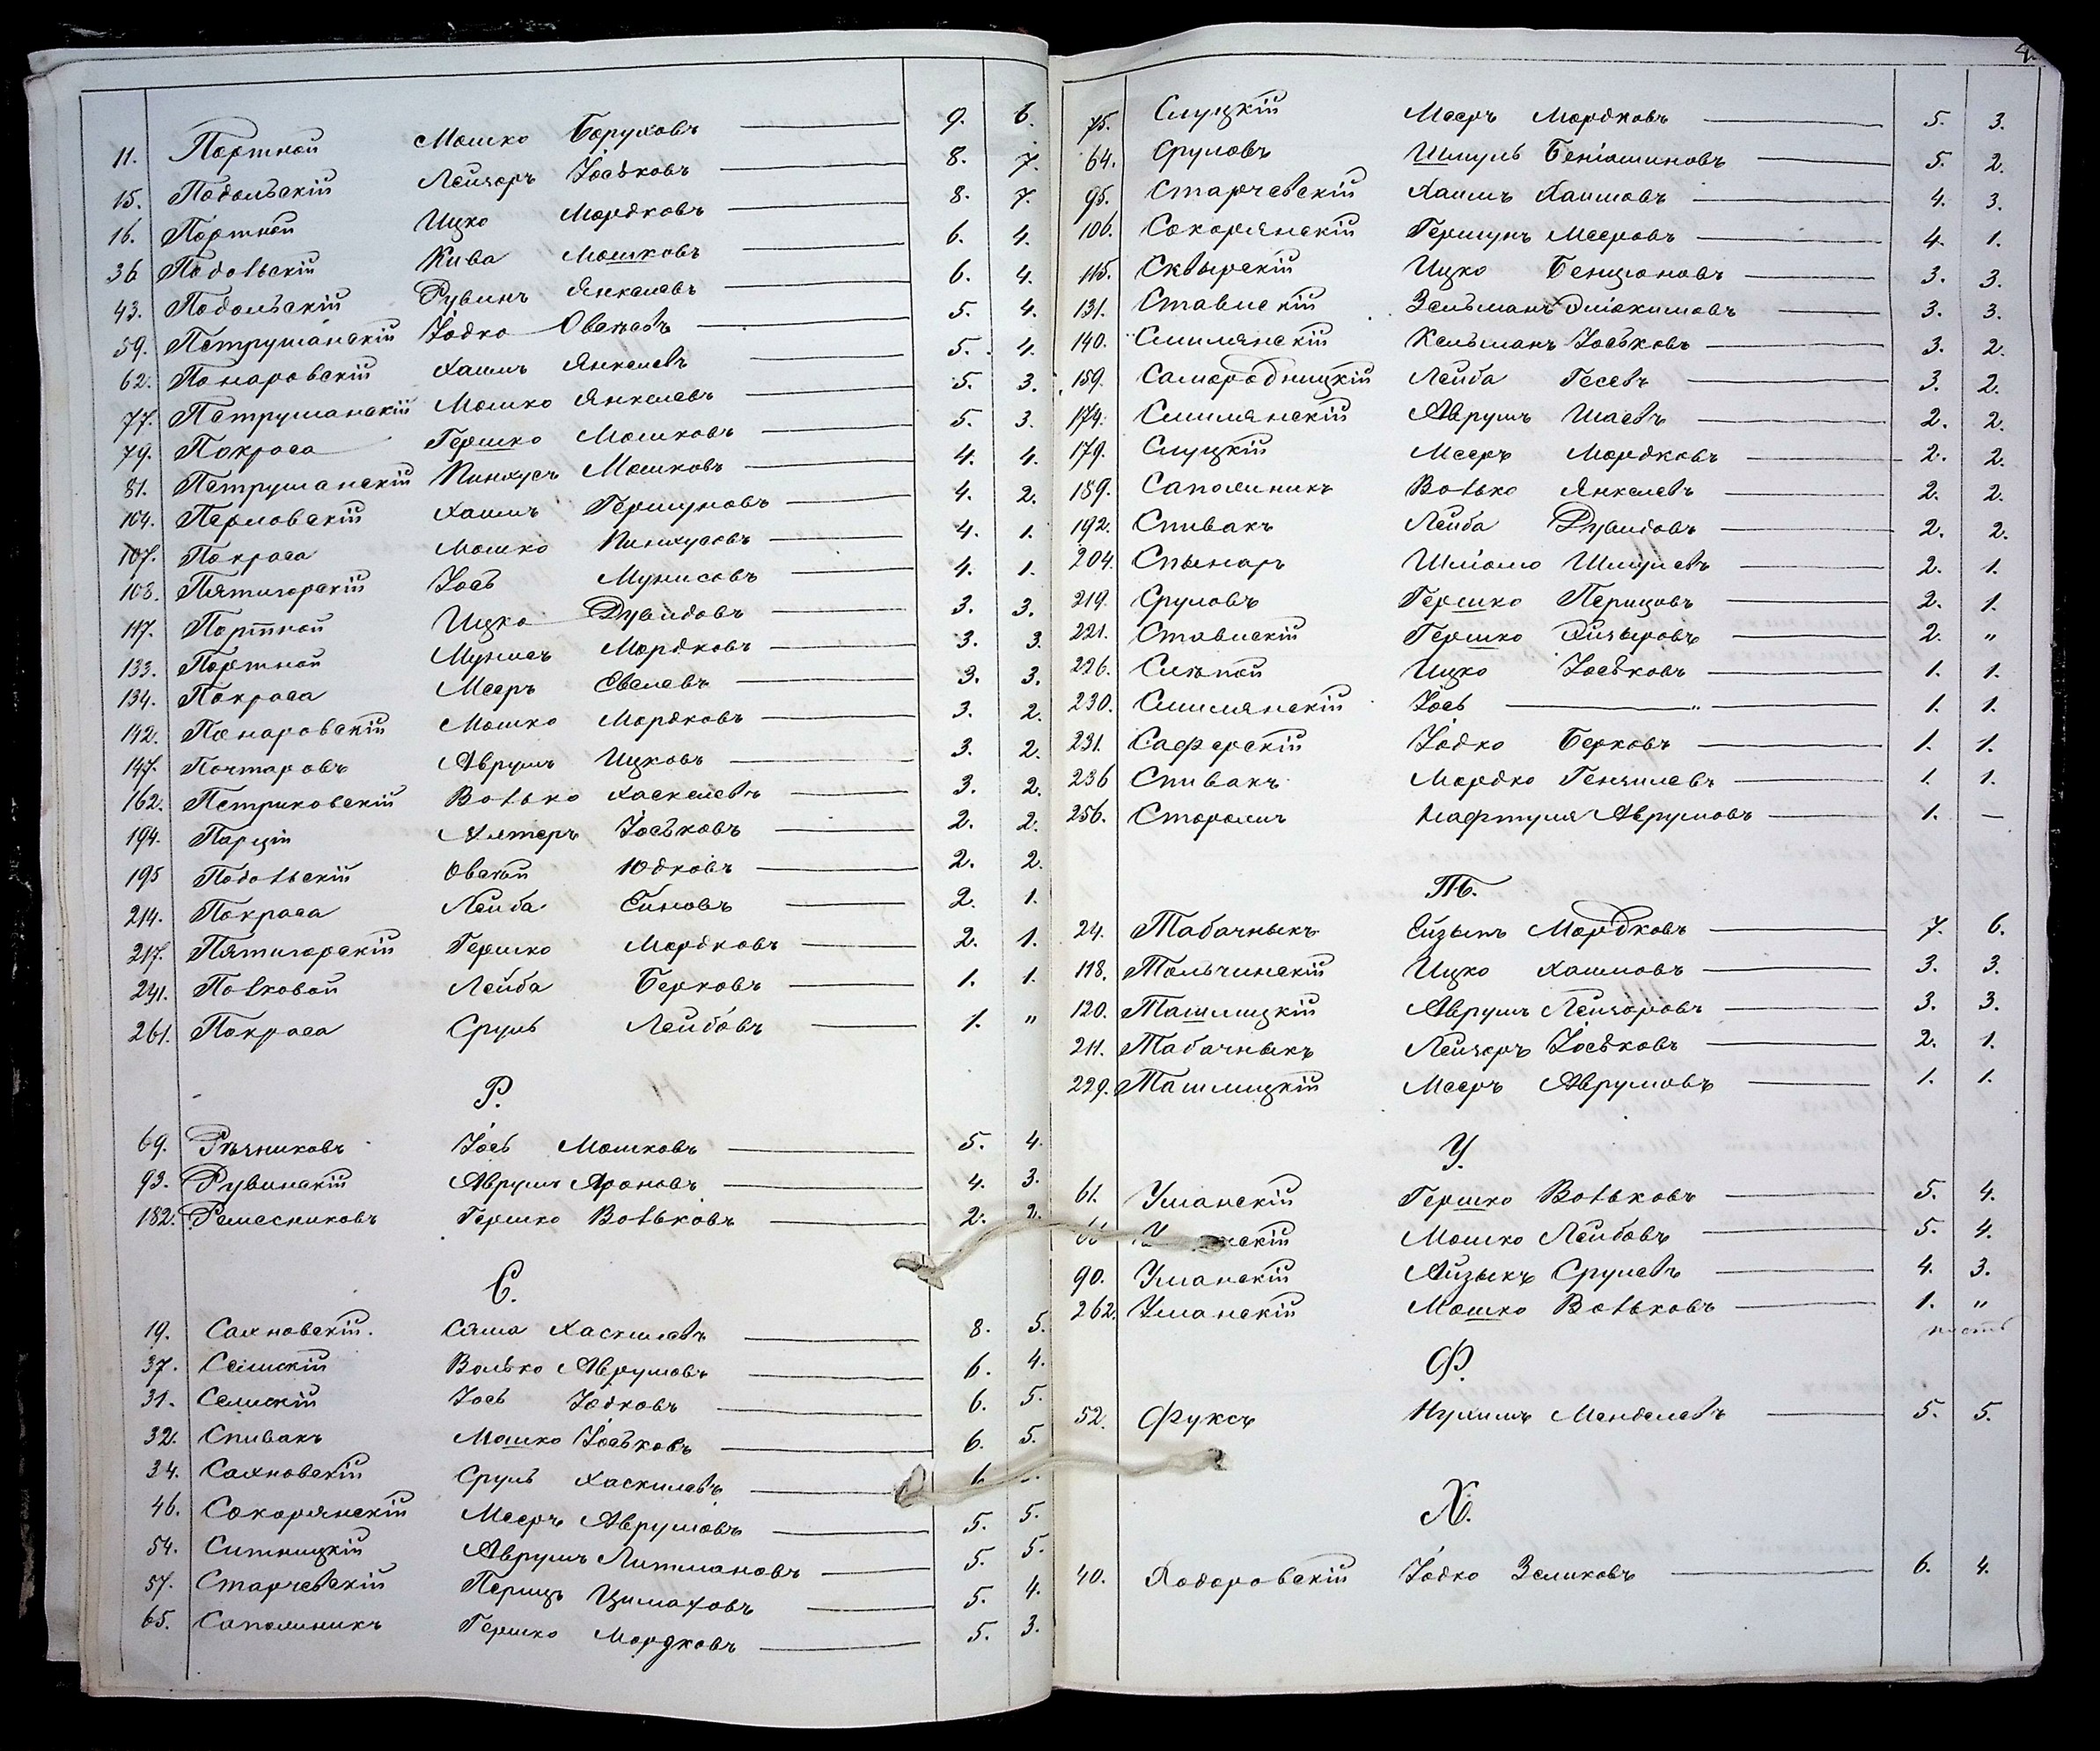 11. Портной Мошко Боруховъ 9. 6.
15. Подольскій Лейзоръ Іоськовъ 8. 7.
16. Портной Ицко Мордковъ 8. 7.
36 Подольскій Кива Мошковъ 6. 4.
43. Подольскій Рувинъ Янкелевъ 6. 4.
59. Петрушанскій Іодко Овсеевъ 5. 4.
62. Понаровскій Хаимъ Янкелевъ 5. 4.
77. Петрушанскій Мошко Янкелевъ 5. 3.
79. Покраса Гершко Мошковъ 5. 3.
81. Петрушанскій Пинхусъ Мошковъ 4. 4.
104. Перловскій Хаимъ Гершуновъ 4. 2.
107. Покраса Мошко Пинхусовъ 4. 1.
108. Пятигорскій Іось Мунисовъ 4. 1.
117. Портной Ицко Дувидовъ 3. 3.
133. Портной Мунись Мордковъ 3. 3.
134. Покраса Мееръ Евелевъ 3. 3.
142. Понаровскій Мошко Мордковъ 3. 2.
147. Почтаровъ Аврумъ Ицковъ 3. 2.
162. Петриковскій Волько Хаскелевъ 3. 2.
194. Парцій Алтеръ Іоськовъ 2. 2.
195 Подольскій Овсѣй Юдковъ 2. 2.
214. Покраса Лейба Ейновъ 2. 1.
217. Пятигорскій Гершко Мордковъ 2. 1.
241. Полковой Лейба Берковъ 1. 1.
261. Покраса Сруль Лейбовъ 1. "
Р.
69. Рѣзниковъ Іось Мошковъ 5. 4.
93. Рувинскій Аврумъ Ароновъ 4. 3.
182. Ремесниковъ Гершко Вольковъ 2. 2.
С.
19. Сахновскій. Сяма Хаскилевъ 8. 5.
37. Семскій Волько Аврумовъ 6. 4.
31. Семскій Іось Іодковъ 6. 5.
32. Спивакъ Мошко Іоськовъ 6. 5.
34. Сахновскій Сруль Хаскилевъ 6.
46. Сокорянскій Мееръ Аврумовъ 5. 5.
54. Ситницкій Аврумъ Литмановъ 5. 5.
57. Старчевскій Перицъ Цимаховъ 5. 4.
65. Сапожникъ Гершко Мордковъ 5. 3.
4
75. Слуцкій Мееръ Мордковъ 5. 3.
64. Сруловъ Шмуль Беніоминовъ 5. 2.
95. Старчевскій Хаимъ Хаимовъ 4. 3.
106. Сокорянскій Гершунъ Мееровъ 4. 1.
115. Сквырскій Ицко Бенціоновъ 3. 3.
131. Ставискій Зельманъ Эліокимовъ 3. 3.
140. Смилянскій Кельманъ Іоськовъ 3. 2.
159. Самородницкій Лейба Гесевъ 3. 2.
174. Смилянскій Аврумъ Шаевъ 2. 2.
179. Слуцкій Мееръ Мордковъ 2. 2.
189. Сапожникъ Волько Янкелевъ 2. 2.
192. Спивакъ Лейба Дувидовъ 2. 2.
204. Спынаръ Шліомо Шмулевъ 2. 1.
219. Сруловъ Гершко Перицовъ 2. 1.
221. Ставискій Гершко Лизыровъ 2. "
226. Слѣпой Ицко Іоськовъ 1. 1.
230. Смилянскій Іось " 1. 1.
231. Саферскій Іодко Берковъ 1. 1.
236 Спивакъ Мордко Гензилевъ 1. 1.
256. Сторожъ Нафтула Аврумовъ 1. —
Т.
24. Табачныкъ Ейзыкъ Мордковъ 7. 6.
118. Тольчинскій Ицко Хаимовъ 3. 3.
120. Ташлицкій Аврумъ Лейзоровъ 3. 3.
211. Табачныкъ Лейзоръ Іоськовъ 2. 1.
229. Ташлицкій Мееръ Аврумовъ 1. 1.
У.
61. Уманскій Гершко Вольковъ 5. 4.
Уманскій Мошко Лейбовъ 5. 4.
90. Уманскій Айзыкъ Срулевъ 4. 3.
262. Уманскій Мошко Вольковъ 1. "
Ф.
52. Фуксъ Нухимъ Менделевъ 5. 5.
Х.
40. Ходоровскій Іодко Зелиховъ 6. 4.